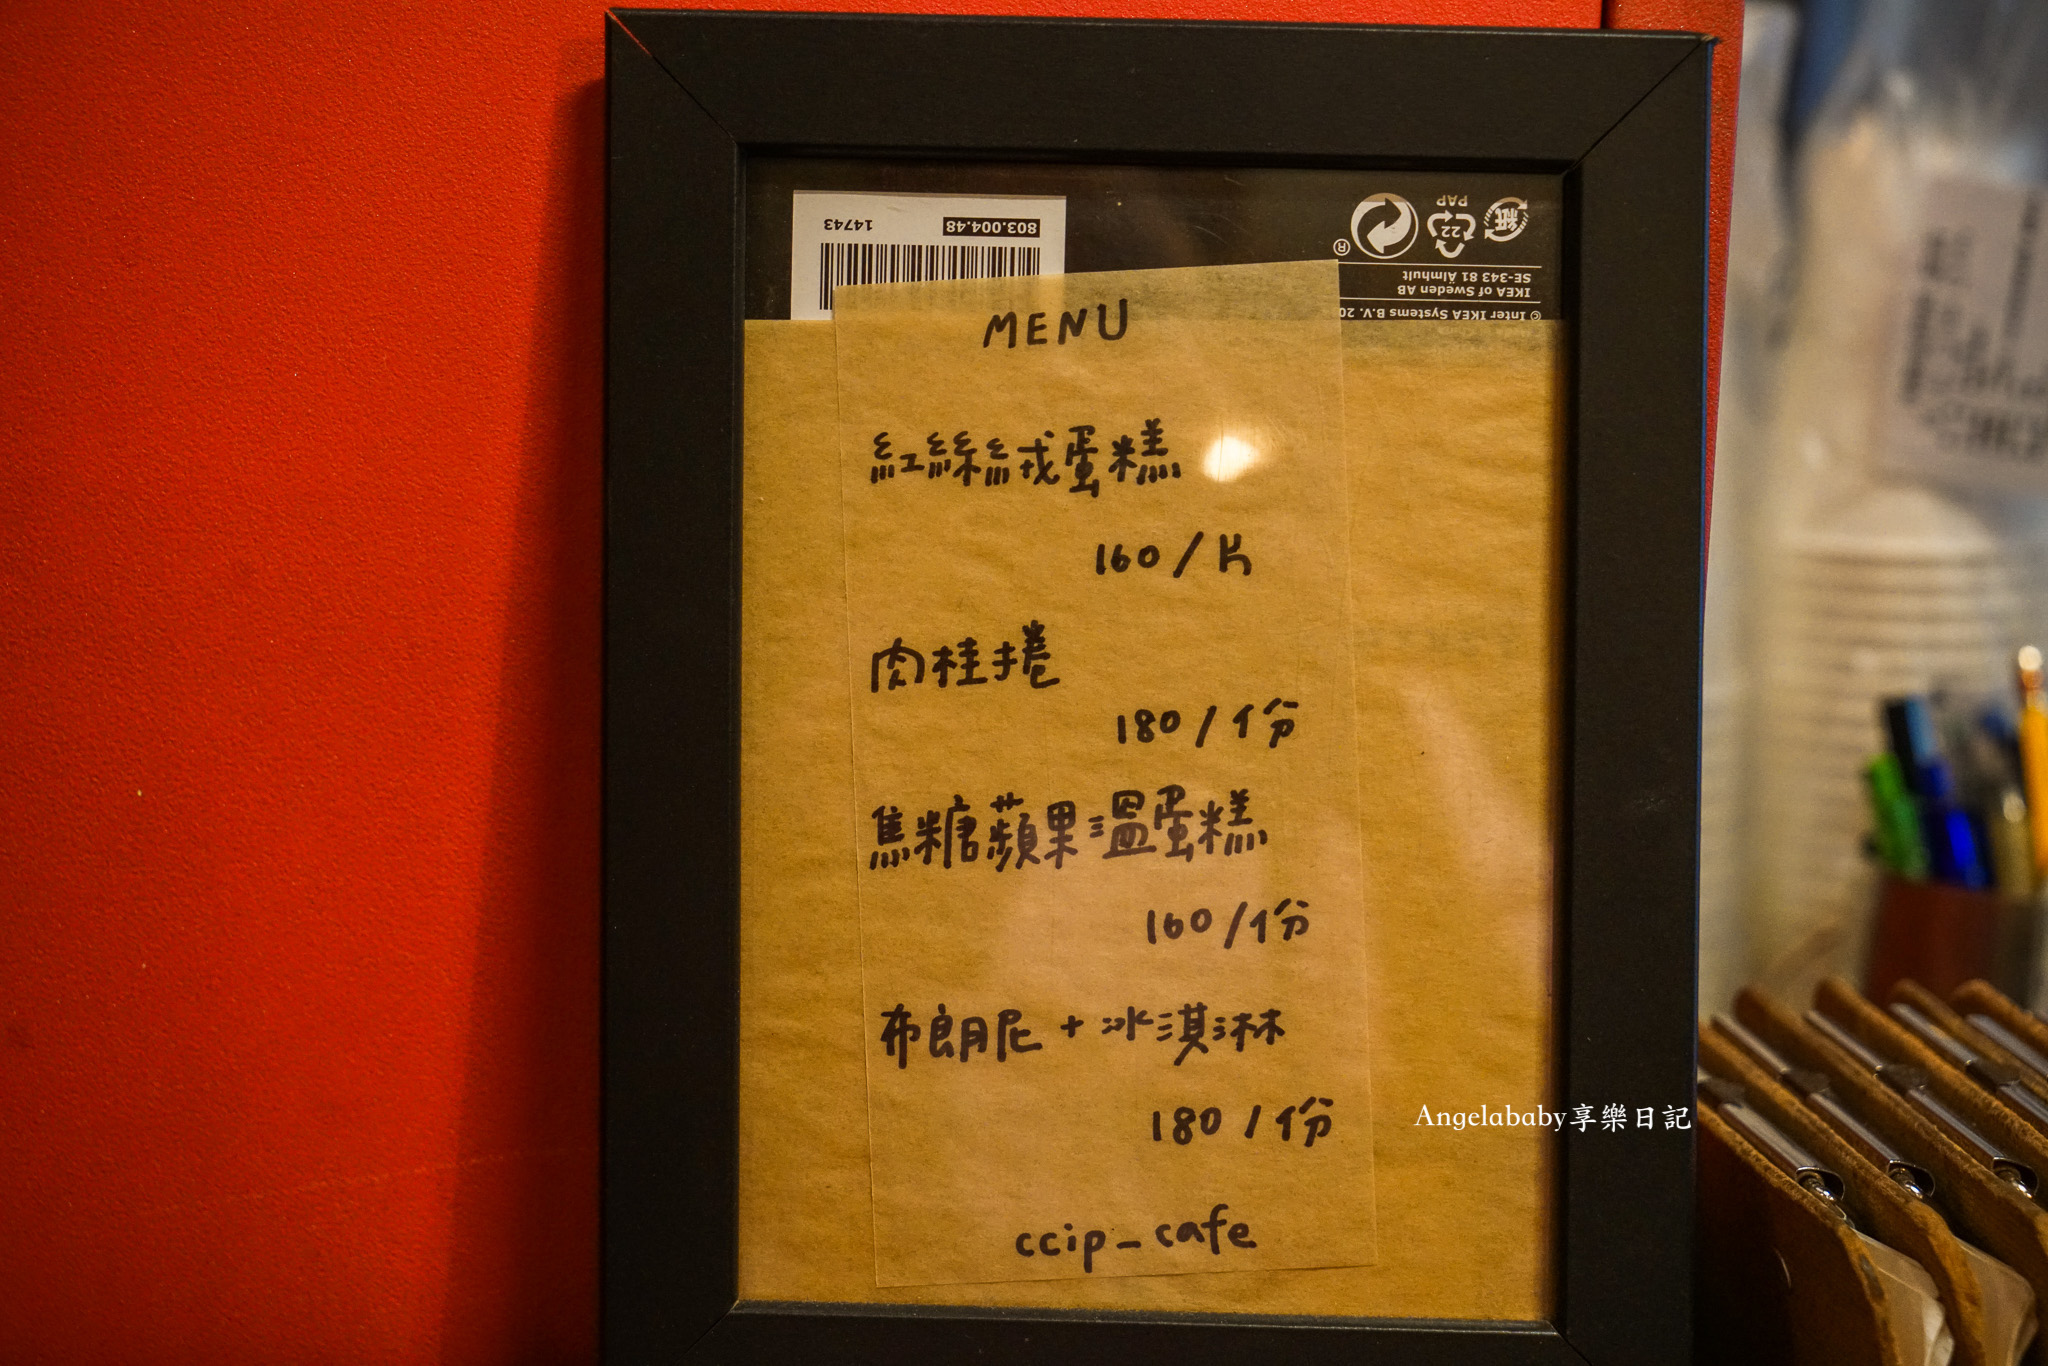 14743 803.004.48
PAP
22
紙
®
SE-343 81 Älmhult
IKEA of Sweden AB
© Inter IKEA Systems B.V. 20
MENU
紅絲絨蛋糕
160/片
肉桂捲
180/份
焦糖蘋果溫蛋糕
160/份
布朗尼+冰淇淋
180/份
ccip_cafe
Angelababy享樂日記